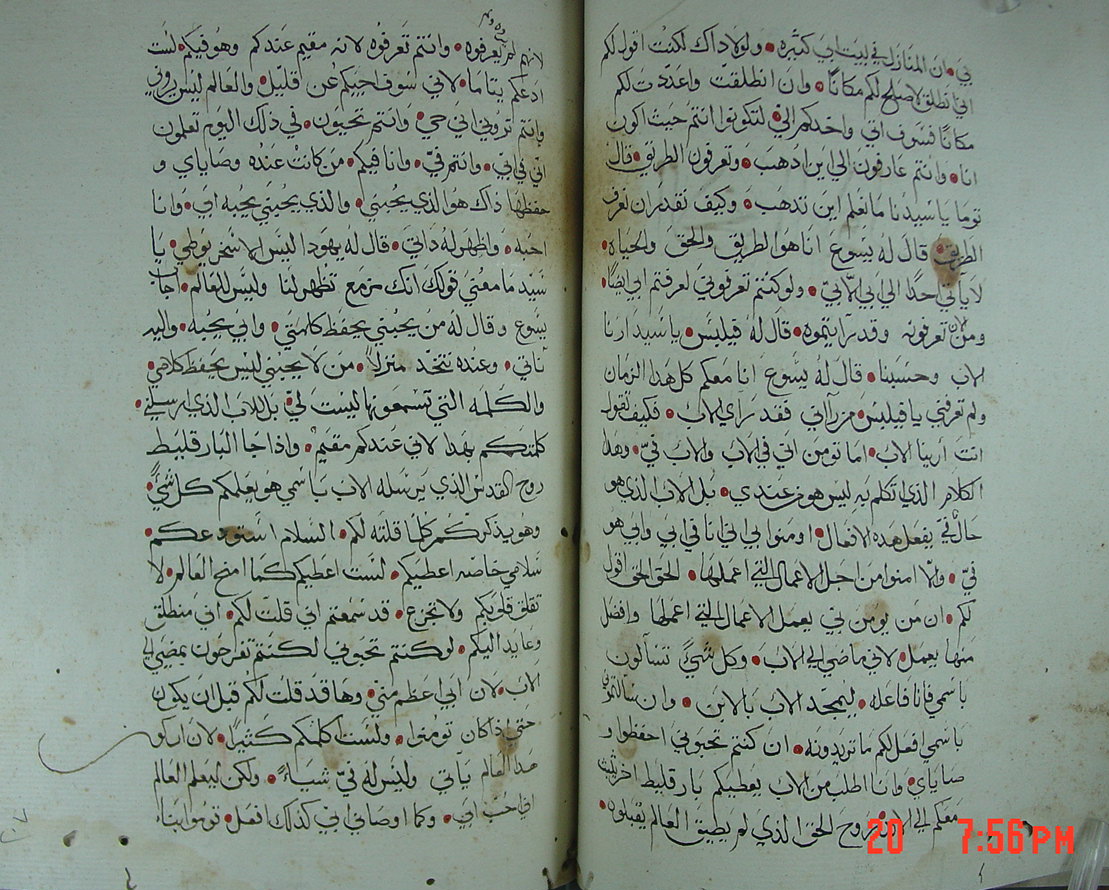 بي • ان المنازل في بيت ابي كثيره • ولولا داك لكنت اقول لكم
اني انطلق لاصلح لكم مكانًا • وان انطلقت واعددت لكم
مكانًا فسوف اتي واخدكم اليّ • لتكونوا انتم حيث اكون
انا • وانتم عارفون الي اين ادهب • وتعرفون الطريق • قال
توما ياسيدنا ما نعلم اين تدهب • وكيف نقدر ان نعرف
الطريق • قال له يسوع انا هوا الطريق والحق والحياه •
لا ياتي احدًا الي ابي الاّ بي • ولو كنتم تعرفوني لعرفتم ابي ايضًا •
ومن الان تعرفونه وقد رايتموه • قال له فيلبس • ياسيد ارنا
الاب وحسبنا • قال له يسوع انا معكم كل هدا الزمان
ولم تعرفني يا فيلبس • من رآني فقد راي الاب • فكيف تقول
انت أرنا الاب • اما تومن اني في الاب والاب فيّ • وهدا
الكلام الذي اتكلم به ليس هو من عندي • بل الاب الذي هو
حالّ فيّ يفعل هده الافعال • اومنوا بي اني انا في ابي وابي هو
فيّ • والّا امنوا من اجل الاعمال التي اعملها • الحق الحق اقول
لكم • ان من يومن بي يعمل الاعمال التي اعملها وافضل
منها يعمل • لاني ماضي الي الاب • وكل شيً تسالون
باسمي فانا فاعله • ليمجد الاب بالابن • وان سالتموني
باسمي افعل لكم ما تريدونه • ان كنتم تحبوني احفظوا و
صاياي • وانا اطلب من الاب يعطيكم بارقليط اخر ليثبت
معكم الي الابد روح الحق الذي لم يطيق العالم يقبلون •
لانهم لم يعرفوه • وانتم تعرفوه لانه مقيم عندكم وهو فيكم • لست
ادعكم يتاما • لاني سوف اجيكم عن قليل • والعالم ليس يروني
وانتم تروني اني حي • وانتم تحيون • في ذلك اليوم تعلمون
اني في ابي • وانتم فيّ • وانا فيكم • من كانت عنده وصاياي و
حفظها داك هو الذي يحبني • والذي يحبني يحبه ابي • وانا
احبه • واظهر له داتي • قال له يهودا ليس الاسخريوطي • يا
سيد ما معني قولك انك مزمع تظهر لنا وليس للعالم • اجاب
يسوع وقال له من يحبني يحفظ كلمتي • وابي يحبه • واليه
ناتي • وعنده نتخد منزلاً • من لا يحبني ليس يحفظ كلامي •
والكلمه التي تسمعونها ليست لي • بل للاب الذي ارسلني •
كلمتكم بهدا لاني عندكم مقيم • واذا جا البارقليط
روح القدس الذي يرسله الاب باسمي هو يعلمكم كل شيً •
وهو يذكركم كلما قلته لكم • السلام استودعكم •
سلامي خاصه اعطيكم • لست اعطيكم كما امنح العالم • لا
تقلق قلوبكم ولا تجزع • قد سمعتم اني قلت لكم • اني منطلق
وعايد اليكم • لو كنتم تحبوني لكنتم تفرحون بمضيي الي
الاب • لان ابي اعظم مني • وها قد قلت لكم قبل ان يكون
حتي اذا كان تومنوا • ولست اكلمكم كثيرًا • لان اركو
هدا العالم ياتي وليس له فيّ شياً • ولكن ليعلم العالم
اني احب ابي • وكما اوصاني ابي كذلك افعل • قوموا بنا
20 7:56 PM